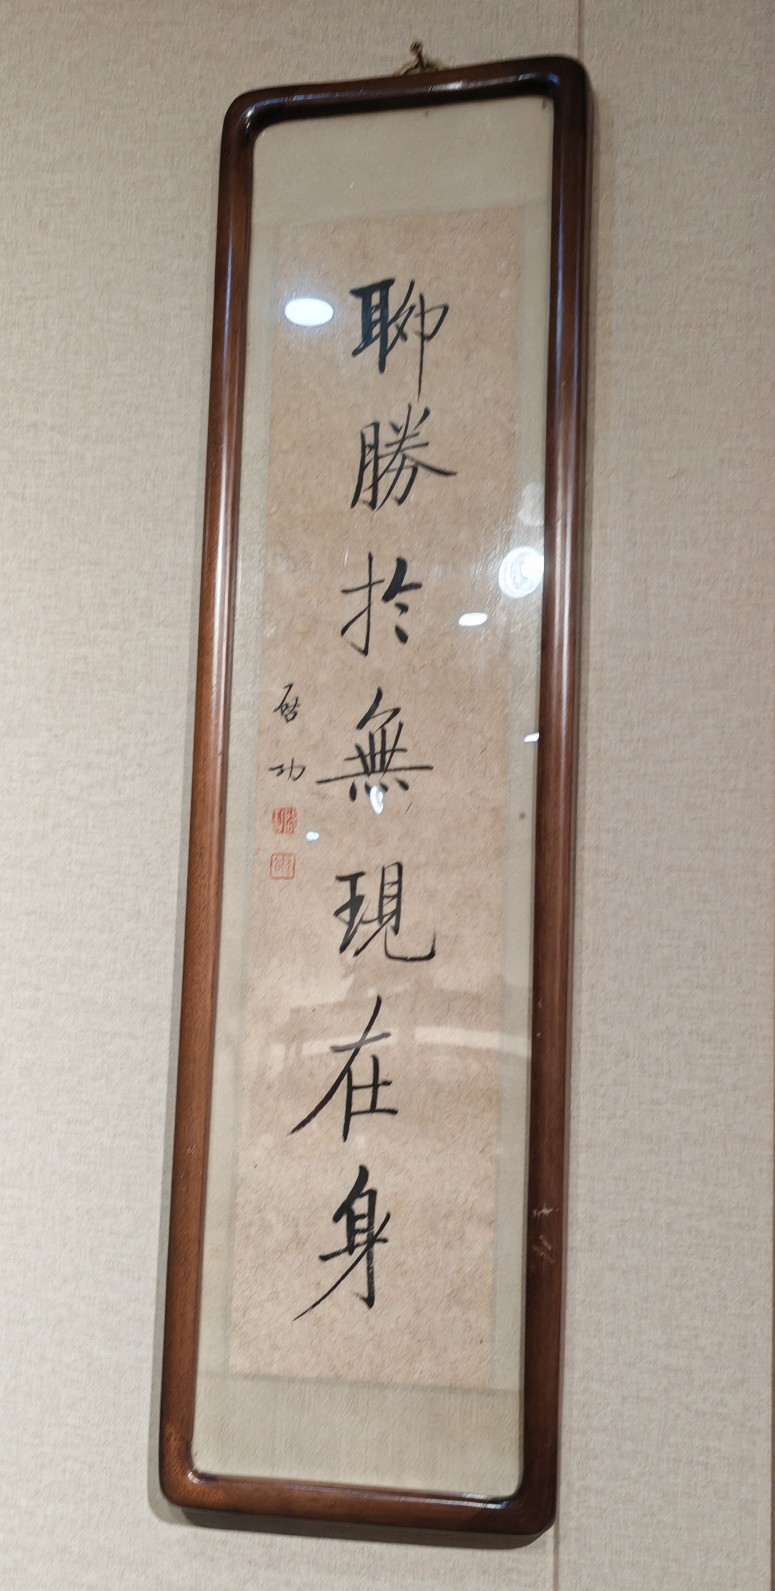 聊勝於無現在身
启功